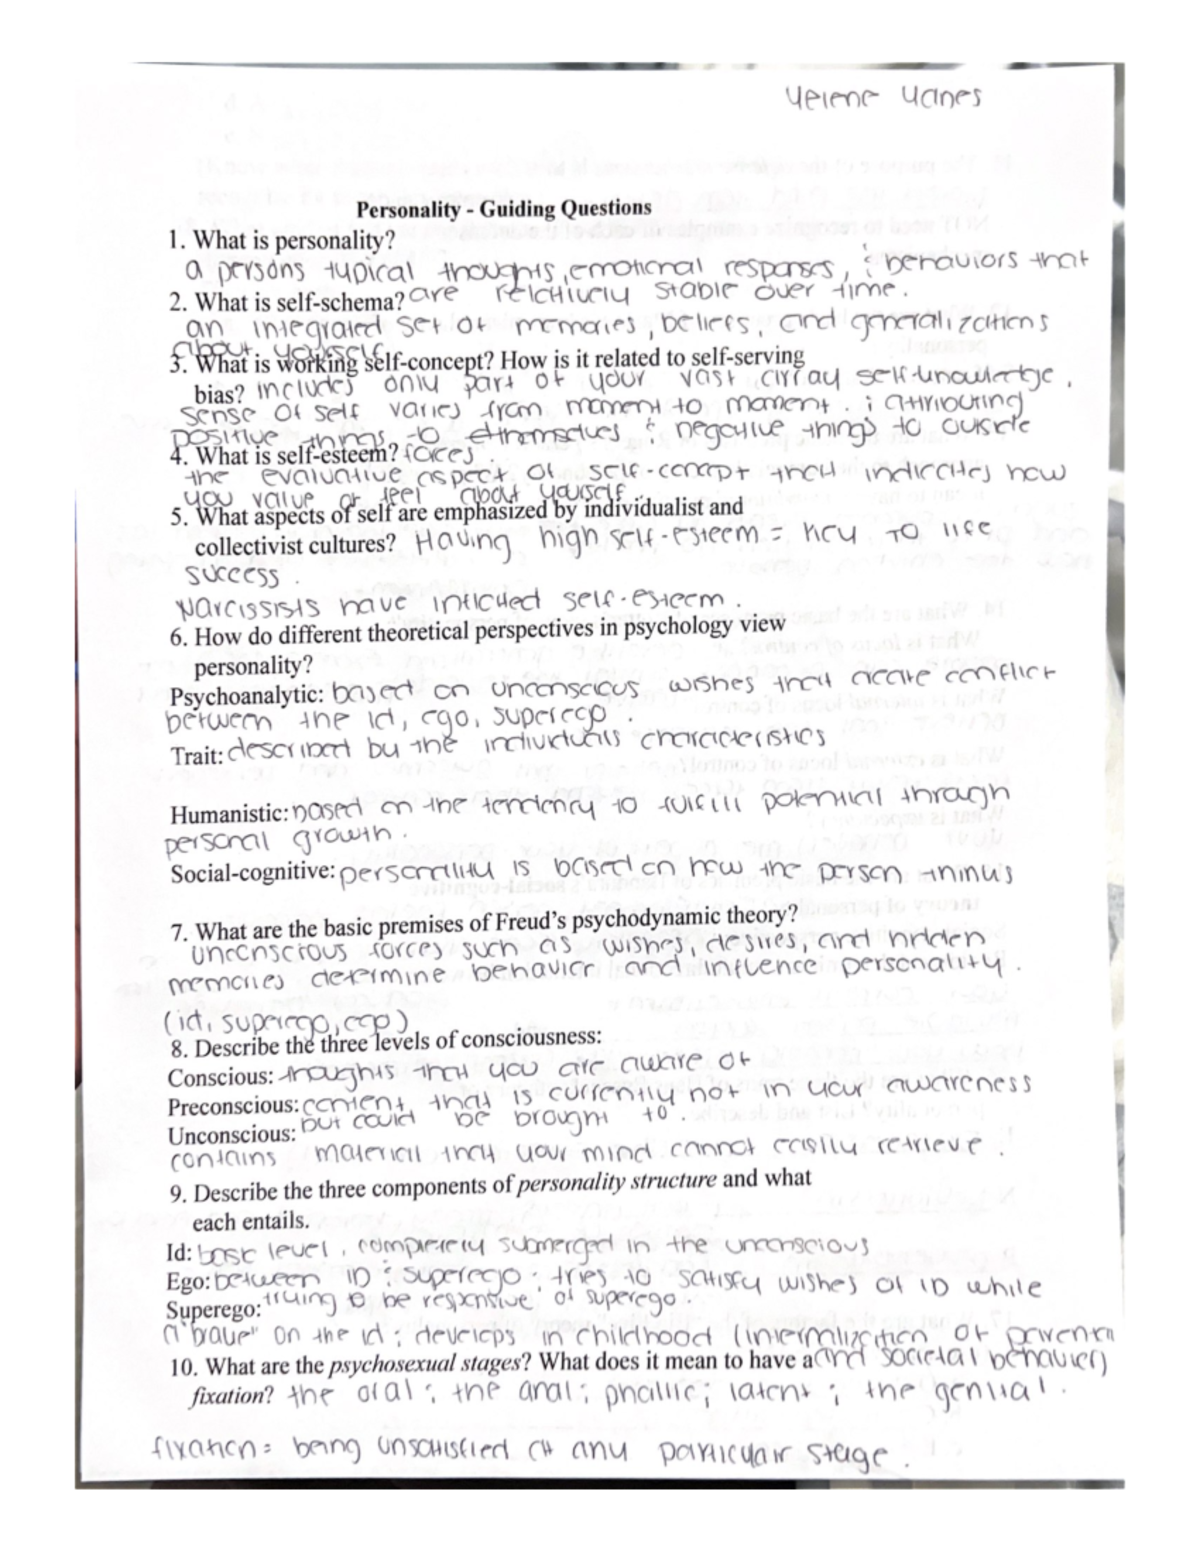 Yelene Yanes
Personality - Guiding Questions
1. What is personality?
a persons typical thoughts, emotional responses, & behaviors that
2. What is self-schema? are relatively stable over time.
an integrated set of memories, beliefs, and generalizations
about yourself
3. What is working self-concept? How is it related to self-serving
bias? includes only part of your vast array self-knowledge,
sense of self varies from moment to moment. ; attributing
positive things to themselves & negative things to outside
4. What is self-esteem? forces.
the evaluative aspect of self-concept that indicates how
you value or feel about yourself.
5. What aspects of self are emphasized by individualist and
collectivist cultures? Having high self-esteem = key to life
success.
Narcissists have inflated self-esteem.
6. How do different theoretical perspectives in psychology view
personality?
Psychoanalytic: based on unconscious wishes that create conflict
between the id, ego, superego.
Trait: described by the individuals characteristics
Humanistic: based on the tendency to fulfill potential through
personal growth.
Social-cognitive: personality is based on how the person thinks
7. What are the basic premises of Freud's psychodynamic theory?
unconscious forces such as wishes, desires, and hidden
memories determine behavior and influence personality.
(id, superego, ego)
8. Describe the three levels of consciousness:
Conscious: thoughts that you are aware of
Preconscious: content that is currently not in your awareness
Unconscious: but could be brought to.
contains material that your mind cannot easily retrieve.
9. Describe the three components of personality structure and what
each entails.
Id: basic level, completely submerged in the unconscious
Ego: between ID & superego; tries to satisfy wishes of ID while
Superego: trying to be responsive of superego.
a "brake" on the id; develops in childhood (internalization of parental
10. What are the psychosexual stages? What does it mean to have a and societal behavior)
fixation? the oral; the anal; phallic; latent; the genital.
fixation = being unsatisfied at any particular stage.